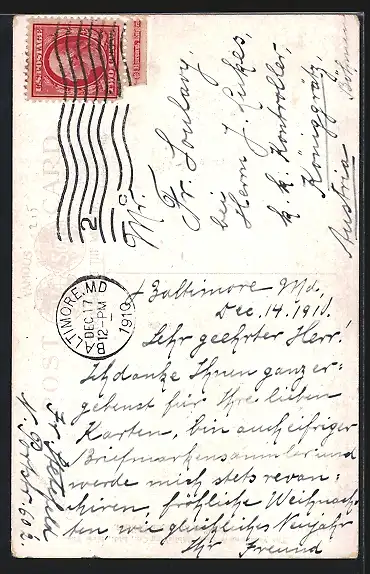 U.S. POSTAGE
BALTIMORE, MD.
DEC 17
12-PM
1910
2
POST CARD
215
Mr.
Fr. Soulavy,
bei
Herrn J. Lukes,
k. k. Kontroller,
Königgrätz,
Austria Böhmen
Baltimore Md,
Dec. 14. 1910.
Sehr geehrter Herr!
Ich danke Ihnen ganz er-
gebenst für Ihre lieben
Karten, bin auch eifriger
Briefmarkensammler und
werde mich stets revan-
chiren, fröhliche Weihnach-
ten wie glückliches Neujahr
Ihr Freund
Fr.
602